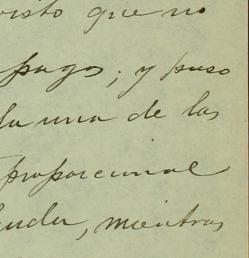 visto que no
pago; y puso
da una de las
proporcional
deuda, mientras